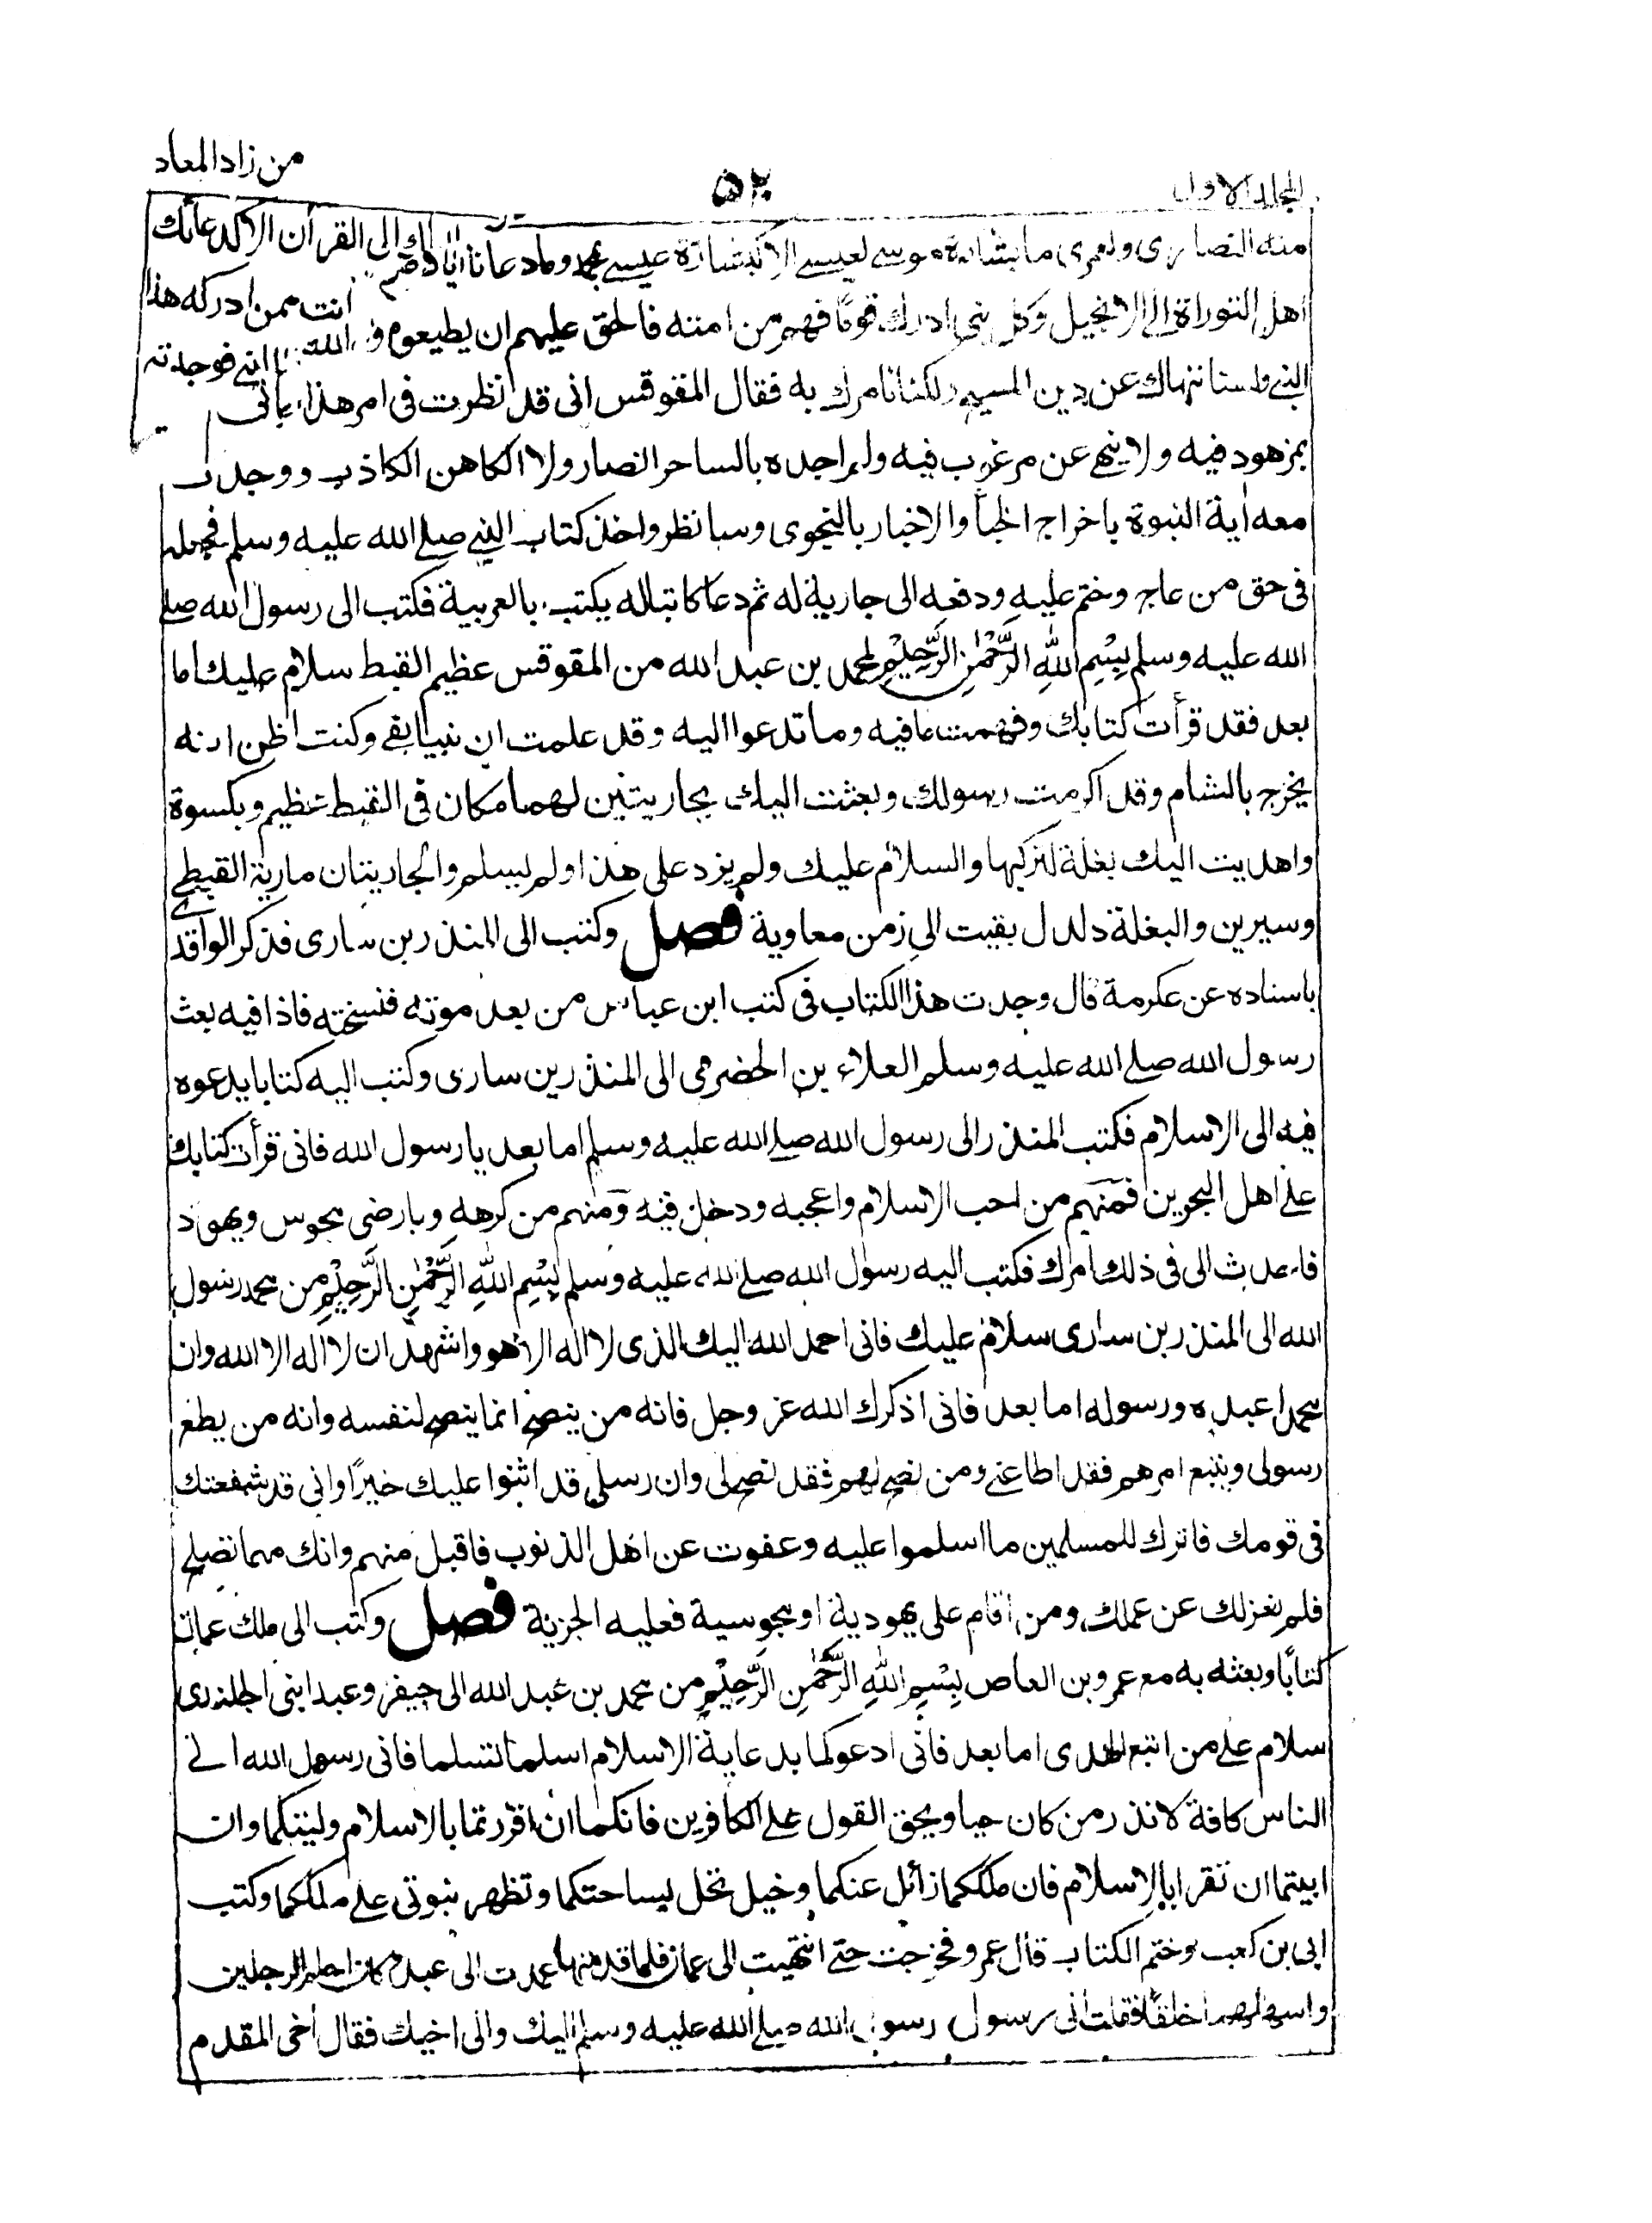 المجلد الاول
۵۲
من زاد المعاد
منه النصارى ولعمرى ما بشارة موسى لعيسى الا كبشارة عيسى بمحمد وما دعانا اياك الى القرأن الا كدعائك
اهل التوراة الى الانجيل وكل نبى ادرك قوما فهم من امته فالحق عليهم ان يطيعوه انت ممن ادركه هذا
النبى ولسنا ننهاك عن دين المسيح ولكنا نامرك به فقال المقوقس انى قد نظرت فى امر هذا النبى فوجدته لا يأتى
بمزهود فيه ولا ينهى عن مرغوب فيه ولم اجده بالساحر الضار ولا الكاهن الكاذب ووجدت
معه أية النبوة باخراج الخبأ والاخبار بالنجوى وسانظر واخذ كتاب النبى صلى الله عليه وسلم فجعله
فى حق من عاج وختم عليه ودفعه الى جارية له ثم دعا كاتبا له يكتب بالعربية فكتب الى رسول الله صلى
الله عليه وسلم بِسْمِ اللهِ الرَّحْمٰنِ الرَّحِيْمِ لمحمد بن عبد الله من المقوقس عظيم القبط سلام عليك اما
بعد فقد قرأت كتابك وفهمت ما فيه وما تدعوا اليه وقد علمت ان نبيا بقى وكنت اظن انه
يخرج بالشام وقد اكرمت رسولك وبعثت اليك بجاريتين لهما مكان فى القبط عظيم وبكسوة
واهديت اليك بغلة لتركبها والسلام عليك ولم يزد على هذا ولم يسلم والجاريتان مارية القبطى
وسيرين والبغلة دلدل بقيت الى زمن معاوية فصل وكتب الى المنذر بن سارى فذكر الواقدى
باسناده عن عكرمة قال وجدت هذا الكتاب فى كتب ابن عباس من بعد موته فنسخته فاذا فيه بعث
رسول الله صلى الله عليه وسلم العلاء بن الحضرمى الى المنذر بن سارى وكتب اليه كتابا يدعوه
فيه الى الاسلام فكتب المنذر الى رسول الله صلى الله عليه وسلم اما بعد يا رسول الله فانى قرأت كتابك
على اهل البحرين فمنهم من احب الاسلام واعجبه ودخل فيه ومنهم من كرهه وبارضى مجوس ويهود
فاحدث الى فى ذلك امرك فكتب اليه رسول الله صلى الله عليه وسلم بِسْمِ اللهِ الرَّحْمٰنِ الرَّحِيْمِ من محمد رسول
الله الى المنذر بن سارى سلام عليك فانى احمد الله اليك الذى لا اله الا هو واشهد ان لا اله الا الله وان
محمدا عبده ورسوله اما بعد فانى اذكرك الله عز وجل فانه من ينصح انما ينصح لنفسه وانه من يطع
رسولى ويتبع امرهم فقد اطاعنى ومن نصح لهم فقد نصح لى وان رسلى قد اثنوا عليك خيرًا وانى قد شفعتك
فى قومك فاترك للمسلمين ما اسلموا عليه وعفوت عن اهل الذنوب فاقبل منهم وانك مهما تصلح
فلم نعزلك عن عملك ومن اقام على يهودية او مجوسية فعليه الجزية فصل وكتب الى ملك عمان
كتابًا وبعثه به مع عمرو بن العاص بِسْمِ اللهِ الرَّحْمٰنِ الرَّحِيْمِ من محمد بن عبد الله الى جيفر وعبد ابنى الجلندى
سلام على من اتبع الهدى اما بعد فانى ادعوكما بدعاية الاسلام اسلما تسلما فانى رسول الله الى
الناس كافة لانذر من كان حيا ويحق القول على الكافرين فانكما ان اقررتما بالاسلام وليتكما وان
ابيتما ان تقرا بالاسلام فان ملككما زائل عنكما وخيل تحل بساحتكما وتظهر نبوتى على ملككما وكتب
ابى بن كعب وختم الكتاب قال عمرو فخرجت حتى انتهيت الى عمان فلما قدمتها عمدت الى عبد وكان احلم الرجلين
واسهلهما خلقًا فقلت انى رسول رسول الله صلى الله عليه وسلم اليك والى اخيك فقال أخى المقدم